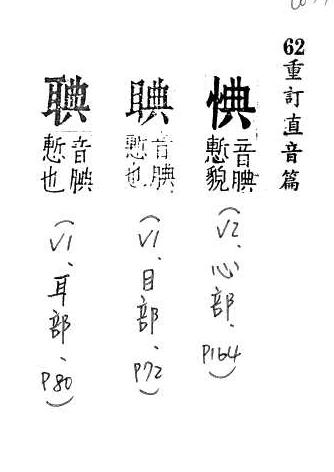 62重訂直音篇
㥏
音腆
慙貌
(V2、心部、P164)
睓
音腆
慙也
(V1、目部、P72)
音腆
慙也
(V1、耳部、P80)